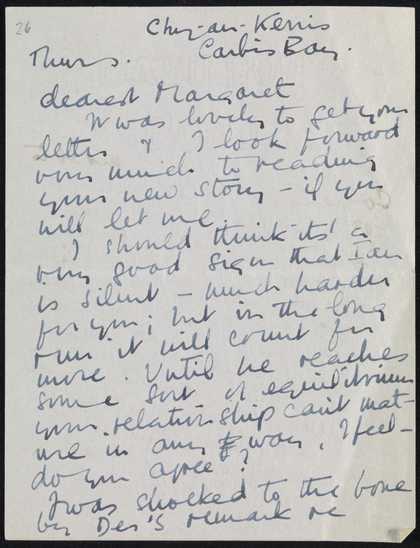 26
Chy-an-Kerris
Carbis Bay.
Thurs.
dearest Margaret
It was lovely to get your
letter & I look forward
very much to reading
your new story - if you
will let me.
I should think it's a
very good sign that Ian
is silent - much harder
for you; but in the long
run it will count for
more. Until he reaches
some sort of equilibrium
your relationship can't mat-
ure in any way, I feel -
do you agree?
I was shocked to the bone
by Des's remark re